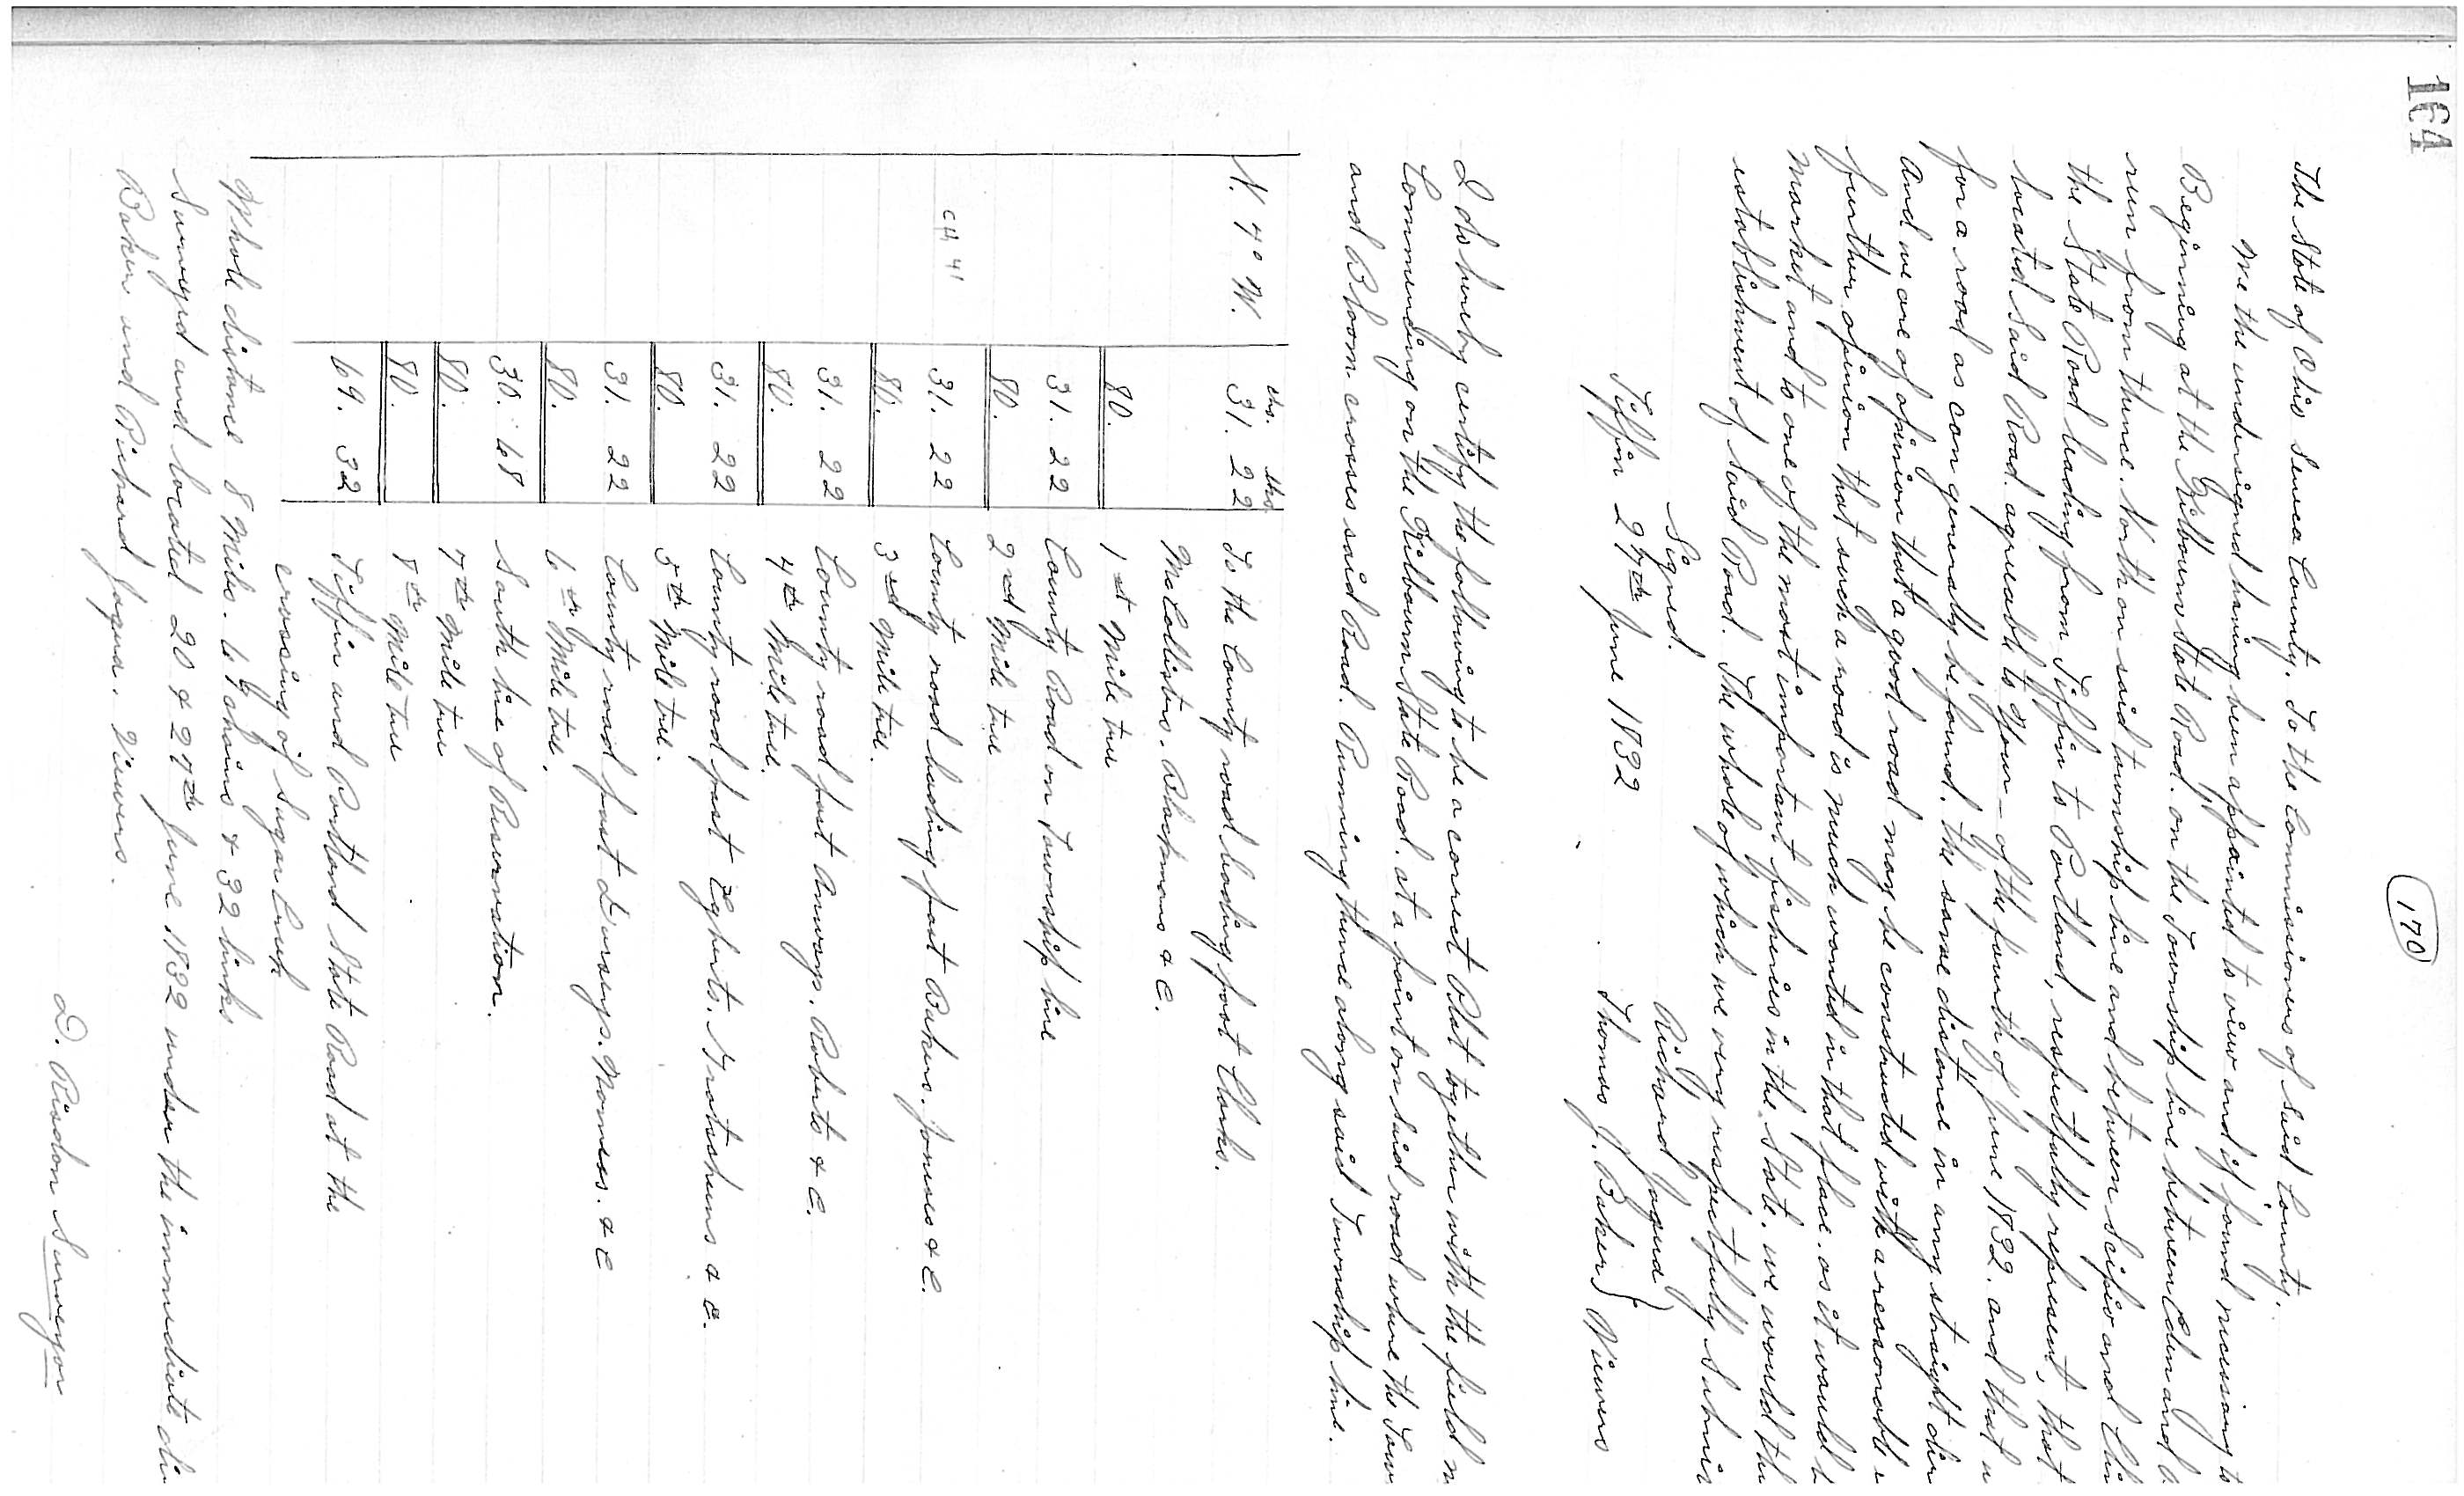 164
170
The State of Ohio Seneca County. To the Commissioners of Said County.
We the undersigned having been appointed to view and if found necessary to
Begining at the Kilbourn State Road. on the Township line between Eden and
run from thence North on said township line and between Scipio and
the State Road leading from Tiffin to Portland, respectfully represent, that
located Said Road agreeable to your — of the fourth of June 1832. and that
for a road as can generally be found. the same distance in any straight
And we are of opinion that a good road may be constructed with a reasonable
further opinion that such a road is much wanted in that place. as it would
market and to one of the most important fisheries in the State. we would
establishment of Said Road. The whole of which we very respectfully
Signed. Richard Jaqua }
Tiffin 27th June 1832 Thomas J. Baker } Viewers
I do hereby certify the following to be a correct Plat together with the field
Commencing on the Kilbourn State Road. at a point on said road where the
and Bloom crosses said Road. Running thence along said Township line.
chs. lks.
N. 4° W. 31. 22 To the County road leading past Clarks.
McCollisters. Blackmans & C.
80. 1st Mile tree
31. 22 County Road on Township line
80. 2nd Mile tree
31. 22 County road leading past Bakers. Joneses & C.
CH 41
80. 3rd Mile tree.
31. 22 County road past Anways. Roberts & C.
80. 4th Mile tree.
31. 22 County road past Egberts. & C.
80. 5th Mile tree.
31. 22 County road past & C
80. 6th Mile tree.
30. 68 South line of Reservation.
80. 7th Mile tree
80. 8th Mile tree
69. 32 Tiffin and Portland State Road at the
crossing of Sugar Creek
Whole distance 8 Miles. 69 chains & 32 links
Surveyed and located 20 & 27th June 1832 under the immediate
Baker and Richard Jaqua. Viewers.
D. Risdon Surveyor